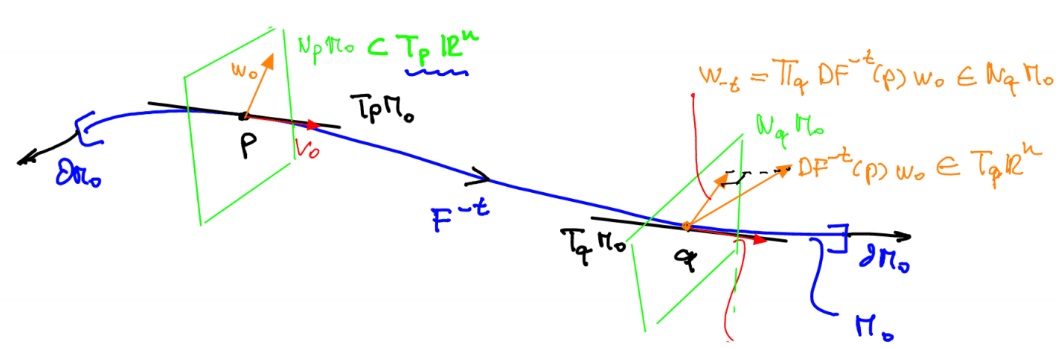 NₚM₀ ⊂ TₚIRⁿ
w₀
TₚM₀
p
v₀
∂M₀
F⁻ᵗ
w₋ₜ = Π_q DF⁻ᵗ(p) w₀ ∈ N_q M₀
N_q M₀
DF⁻ᵗ(p) w₀ ∈ T_q IRⁿ
T_q M₀
q
∂M₀
M₀